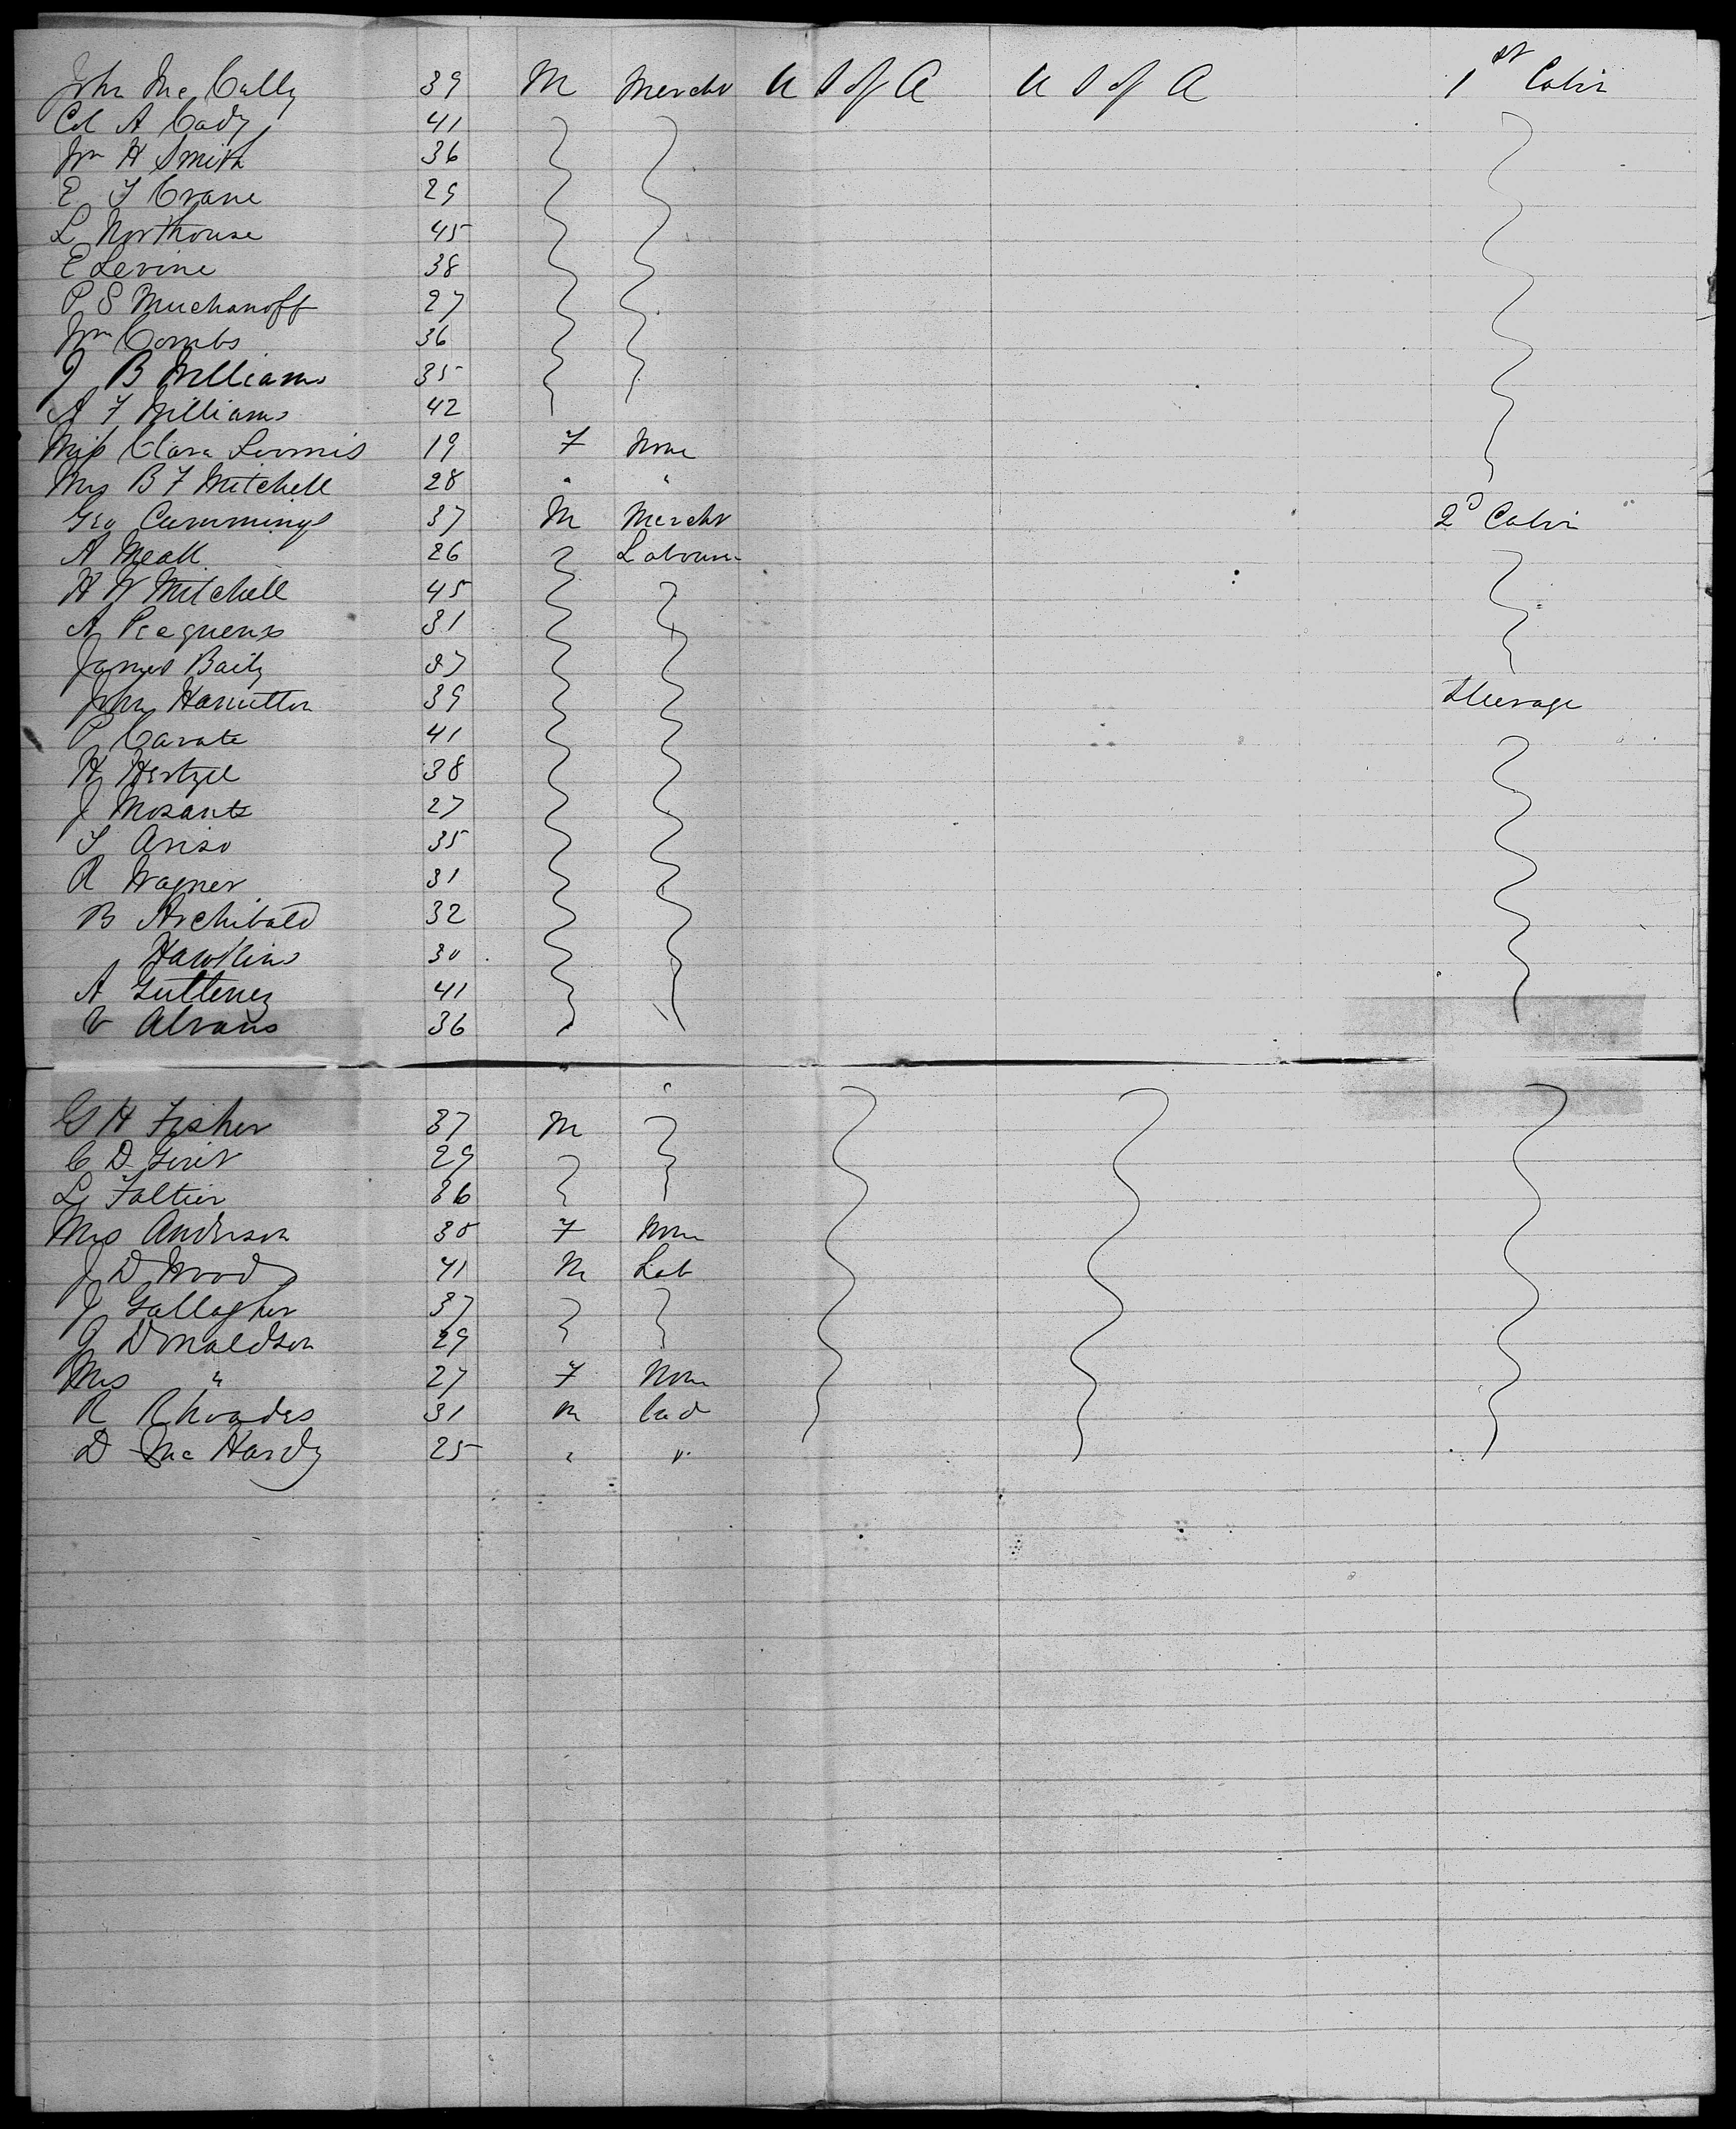 John Mc Cully 39 M Mercht U S of A U S of A 1st Cabin
Col A Cady 41
Wm H Smith 36
E T Crane 29
L Northouse 45
E Levine 38
P S Muchanoff 27
Wm Combs 36
J B Williams 35
A F Williams 42
Miss Clara Loomis 19 F None
Mrs B F Mitchell 28 " "
Geo Cummings 37 M Mercht 2d Cabin
A Meall 26 Labourer
H W Mitchell 45
A 31
James Baily 37
John Hamilton 39 Steerage
P Carate 41
H Hertzel 38
J Mosants 27
T Ariso 35
R Wagner 31
B Archibald 32
Hawkins 30
A Gutterez 41
V Alvans 36
G H Fisher 37 M
C D 29
L Faltier 36
Mrs Anderson 30 F None
J D Wood 41 M Lab
J Gallagher 37
J Donaldson 29
Mrs " 27 F None
R Rhoades 31 M Lab
D Mc Hardy 25 " "